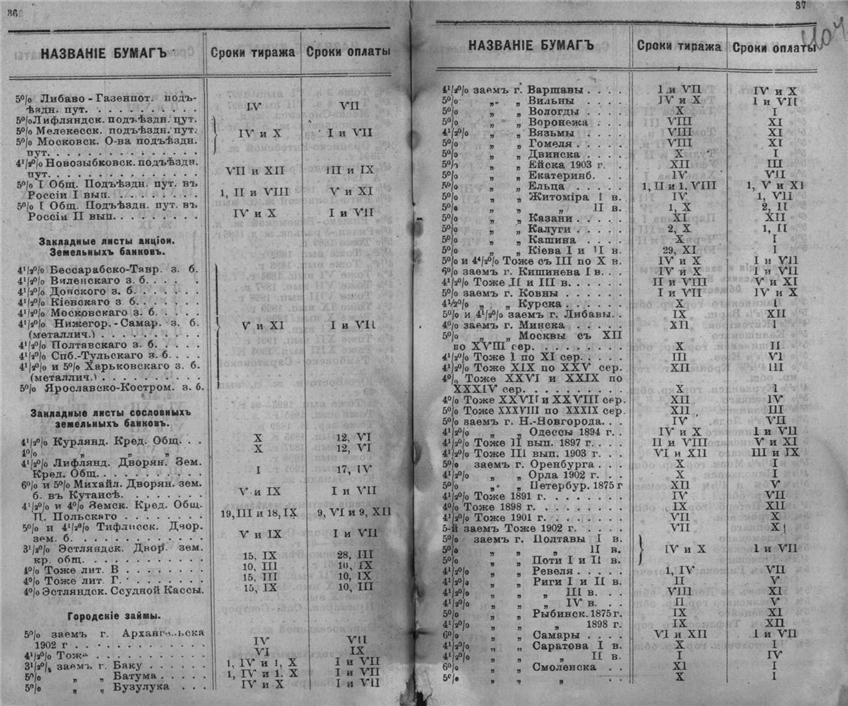 36
НАЗВАНІЕ БУМАГЪ Сроки тиража Сроки оплаты
5⁰/₀ Либаво-Газенпот. подъ-
ѣздн. пут. . . . . . . . . IV VII
5⁰/₀ Лифляндск. подъѣздн. пут.
5⁰/₀ Мелекесск. подъѣздн. пут. IV и X I и VII
5⁰/₀ Московск. О-ва подъѣздн.
пут. . . . . . . . . . . .
4¹/₂⁰/₀ Новозыбковск. подъѣздн.
пут. . . . . . . . . . . . VII и XII III и IX
5⁰/₀ I Общ. Подъѣздн. пут. въ
Россіи I вып. . . . . . . . 1, II и VIII V и XI
5⁰/₀ I Общ. Подъѣздн. пут. въ
Россіи II вып. . . . . . . . IV и X I и VII
Закладные листы акціон.
Земельныхъ банковъ.
4¹/₂⁰/₀ Бессарабско-Тавр. з. б.
4¹/₂⁰/₀ Виленскаго з. б. . . . .
4¹/₂⁰/₀ Донского з. б. . . . . .
4¹/₂⁰/₀ Кіевскаго з б. . . . . .
4¹/₂⁰/₀ Московскаго з. б. . . . .
4¹/₂⁰/₀ Нижегор.-Самар. з. б. V и XI I и VII
(металлич.) . . . . . . . .
4¹/₂⁰/₀ Полтавскаго з. б. . . . .
4¹/₂⁰/₀ Спб.-Тульскаго з. б. . . .
4¹/₂⁰/₀ и 5⁰/₀ Харьковскаго з. б.
(металлич.) . . . . . . . .
5⁰/₀ Ярославско-Костром. з. б.
Закладные листы сословныхъ
земельныхъ банковъ.
4¹/₂⁰/₀ Курлянд. Кред. Общ. . . X 12, VI
4⁰/₀ „ „ „ . . X 12, VI
4¹/₂⁰/₀ Лифлянд. Дворян. Зем.
Кред. Общ. . . . . . . . . I 17, IV
6⁰/₀ и 5⁰/₀ Михайл. Дворян. зем.
б. въ Кутаисѣ. . . . . . . V и IX I и VII
4¹/₂⁰/₀ и 4⁰/₀ Земск. Кред. Общ.
Ц. Польскаго . . . . . . . 19,III и 18, IX 9, VI и 9, XII
5⁰/₀ и 4¹/₂⁰/₀ Тифлисск. Двор.
зем. б. . . . . . . . . . . V и IX I и VII
3¹/₂⁰/₀ Эстляндск. Двор. зем.
кр. общ. . . . . . . . . . 15, IX 28, III
4⁰/₀ Тоже лит. В . . . . . . . 10, III 10, IX
4⁰/₀ Тоже лит. Г . . . . . . . 15, III 10, IX
4⁰/₀ Эстляндск. Ссудной Кассы. 15, IX 10, III
Городскіе займы.
5⁰/₀ заемъ г. Архангельска
1902 г . . . . . . . . . . IV VII
4¹/₂⁰/₀ Тоже . . . . . . . . . VI IX
3¹/₂⁰/₀ заемъ г. Баку . . . . . 1, IV и 1, X I и VII
5⁰/₀ „ „ Батума . . . . 1, IV и 1. X I и VII
5⁰/₀ „ „ Бузулука . . . IV и X I и VII
37
НАЗВАНІЕ БУМАГЪ Сроки тиража Сроки оплаты
4¹/₂⁰/₀ заем г. Варшавы . . . . 1 и VII IV и X
5⁰/₀ „ „ Вильны . . . . IV и X 1 и VII
5⁰/₀ „ „ Вологды . . . . X I
5⁰/₀ „ „ Воронежа . . . VIII XI
4¹/₂⁰/₀ „ „ Вязьмы . . . . VIII XI
5⁰/₀ „ „ Гомеля . . . . VIII XI
5⁰/₀ „ „ Двинска . . . . X I
5⁰/₀ „ „ Ейска 1903 г. . . XII III
5⁰/₀ „ „ Екатеринб. . . . IV VII
5⁰/₀ „ „ Ельца . . . . . 1, II и 1, VIII 1, V и XI
5⁰/₀ „ „ Житоміра I в. IV 1, VII
5⁰/₀ „ „ „ II в. 1, X 2, II
5⁰/₀ „ „ Казани . . . . XI XII
5⁰/₀ „ „ Калуги . . . . 2, X 1, II
5⁰/₀ „ „ Кашина . . . . X I
5⁰/₀ „ „ Кіева I и II в. 29, XI I
5⁰/₀ и 4⁴/₂⁰/₀ Тоже съ III по X в. IV и X I и VII
6⁰/₀ заем г. Кишинева I в. . . . IV и X I и VII
4¹/₂⁰/₀ Тоже II и III в. . . . . II и VIII V и XI
5⁰/₀ заем г. Ковны . . . . . . I и VII IV и X
4½⁰/₀ „ „ Курска . . . . . X I
5⁰/₀ и 4¹/₂⁰/₀ заем г. Либавы. . IX XII
4⁰/₀ заем г. Минска . . . . . . XII I
5⁰/₀ „ „ Москвы съ XII
по XVIII сер. . . . . . . . X II
4¹/₂⁰/₀ Тоже 1 по XI сер. . . . . III VI
4¹/₂⁰/₀ Тоже XIX по XXV сер. XII III
4⁰/₀ Тоже XXVI и XXIX по
XXXIV сер. . . . . . . . . X I
4⁰/₀ Тоже XXVII и XXVIII сер. XII IV
5⁰/₀ Тоже XXXVIII по XXXIX сер. XII III
5⁰/₀ заем г. Н.-Новгорода. . . IV VII
4¹/₂⁰/₀ „ „ Одессы 1894 г. . . IV и X 1 и VII
4¹/₂⁰/₀ Тоже II вып. 1897 г. . . . II и VIII V и XI
4¹/₂⁰/₀ Тоже III вып. 1903 г. . . VI и XII III и IX
5⁰/₀ заем г. Оренбурга . . . . X I
4¹/₂⁰/₀ „ „ Орла 1902 г. . . . X I
5⁰/₀ „ „ Петербур. 1875 г XII V
4¹/₂⁰/₀ Тоже 1891 г. . . . . . . IV VII
4⁰/₀ Тоже 1898 г. . . . . . . . IX X
4¹/₂⁰/₀ Тоже 1901 г. . . . . . . VII X
5-й заем Тоже 1902 г. . . . . . VII X
5⁰/₀ заем г. Полтавы I в.
5⁰/₀ „ „ „ II в. IV и X 1 и VII
5⁰/₀ „ „ Поти I и II в.
4¹/₂⁰/₀ „ „ Ревеля . . . . . 1, IV VII
4¹/₂⁰/₀ „ „ Риги I и II в. II V
4¹/₂⁰/₀ „ „ „ III в. . . . VIII XI
4¹/₂⁰/₀ „ „ „ IV в. . . . II V
5⁰/₀ „ „ Рыбинск. 1875 г. IX XI
4¹/₂⁰/₀ „ „ „ 1898 г. IX XII
6⁰/₀ „ „ Самары . . . . VI и XII I и VII
4¹/₂⁰/₀ „ „ Саратова I в. X I
4¹/₂⁰/₀ „ „ „ II в. I IV
6⁰/₀ „ „ Смоленска . . XI I
5⁰/₀ „ „ „ X I